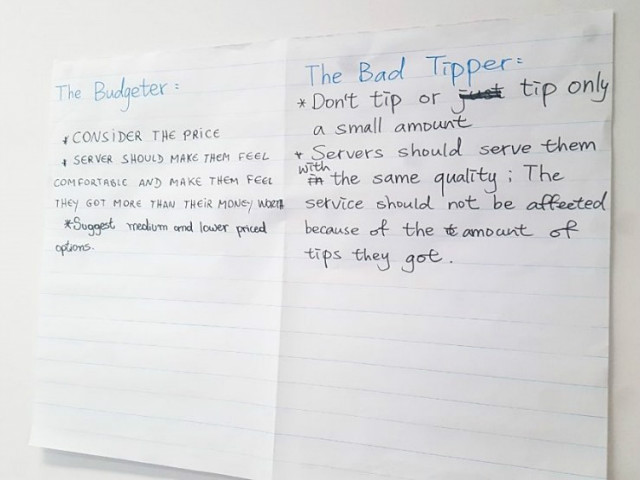 The Budgeter:
* CONSIDER THE PRICE
* SERVER SHOULD MAKE THEM FEEL
COMFORTABLE AND MAKE THEM FEEL
THEY GOT MORE THAN THEIR MONEY WORTH
*Suggest medium and lower priced
options.
The Bad Tipper:
* Don't tip or just tip only
a small amount
* Servers should serve them
with
in the same quality; The
service should not be affected
because of the t amount of
tips they got.